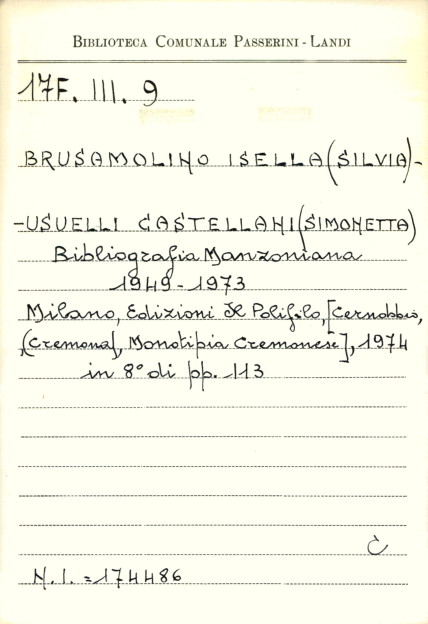 BIBLIOTECA COMUNALE PASSERINI - LANDI
17F. III. 9
BRUSAMOLINO ISELLA (SILVIA) -
- USUELLI CASTELLANI (SIMONETTA)
Bibliografia Manzoniana
1949 - 1973
Milano, Edizioni Il Polifilo, [Cernobbio,
(Cremona), Monotipia Cremonese], 1974
in 8° di pp. 113
C
N. I. = 174486